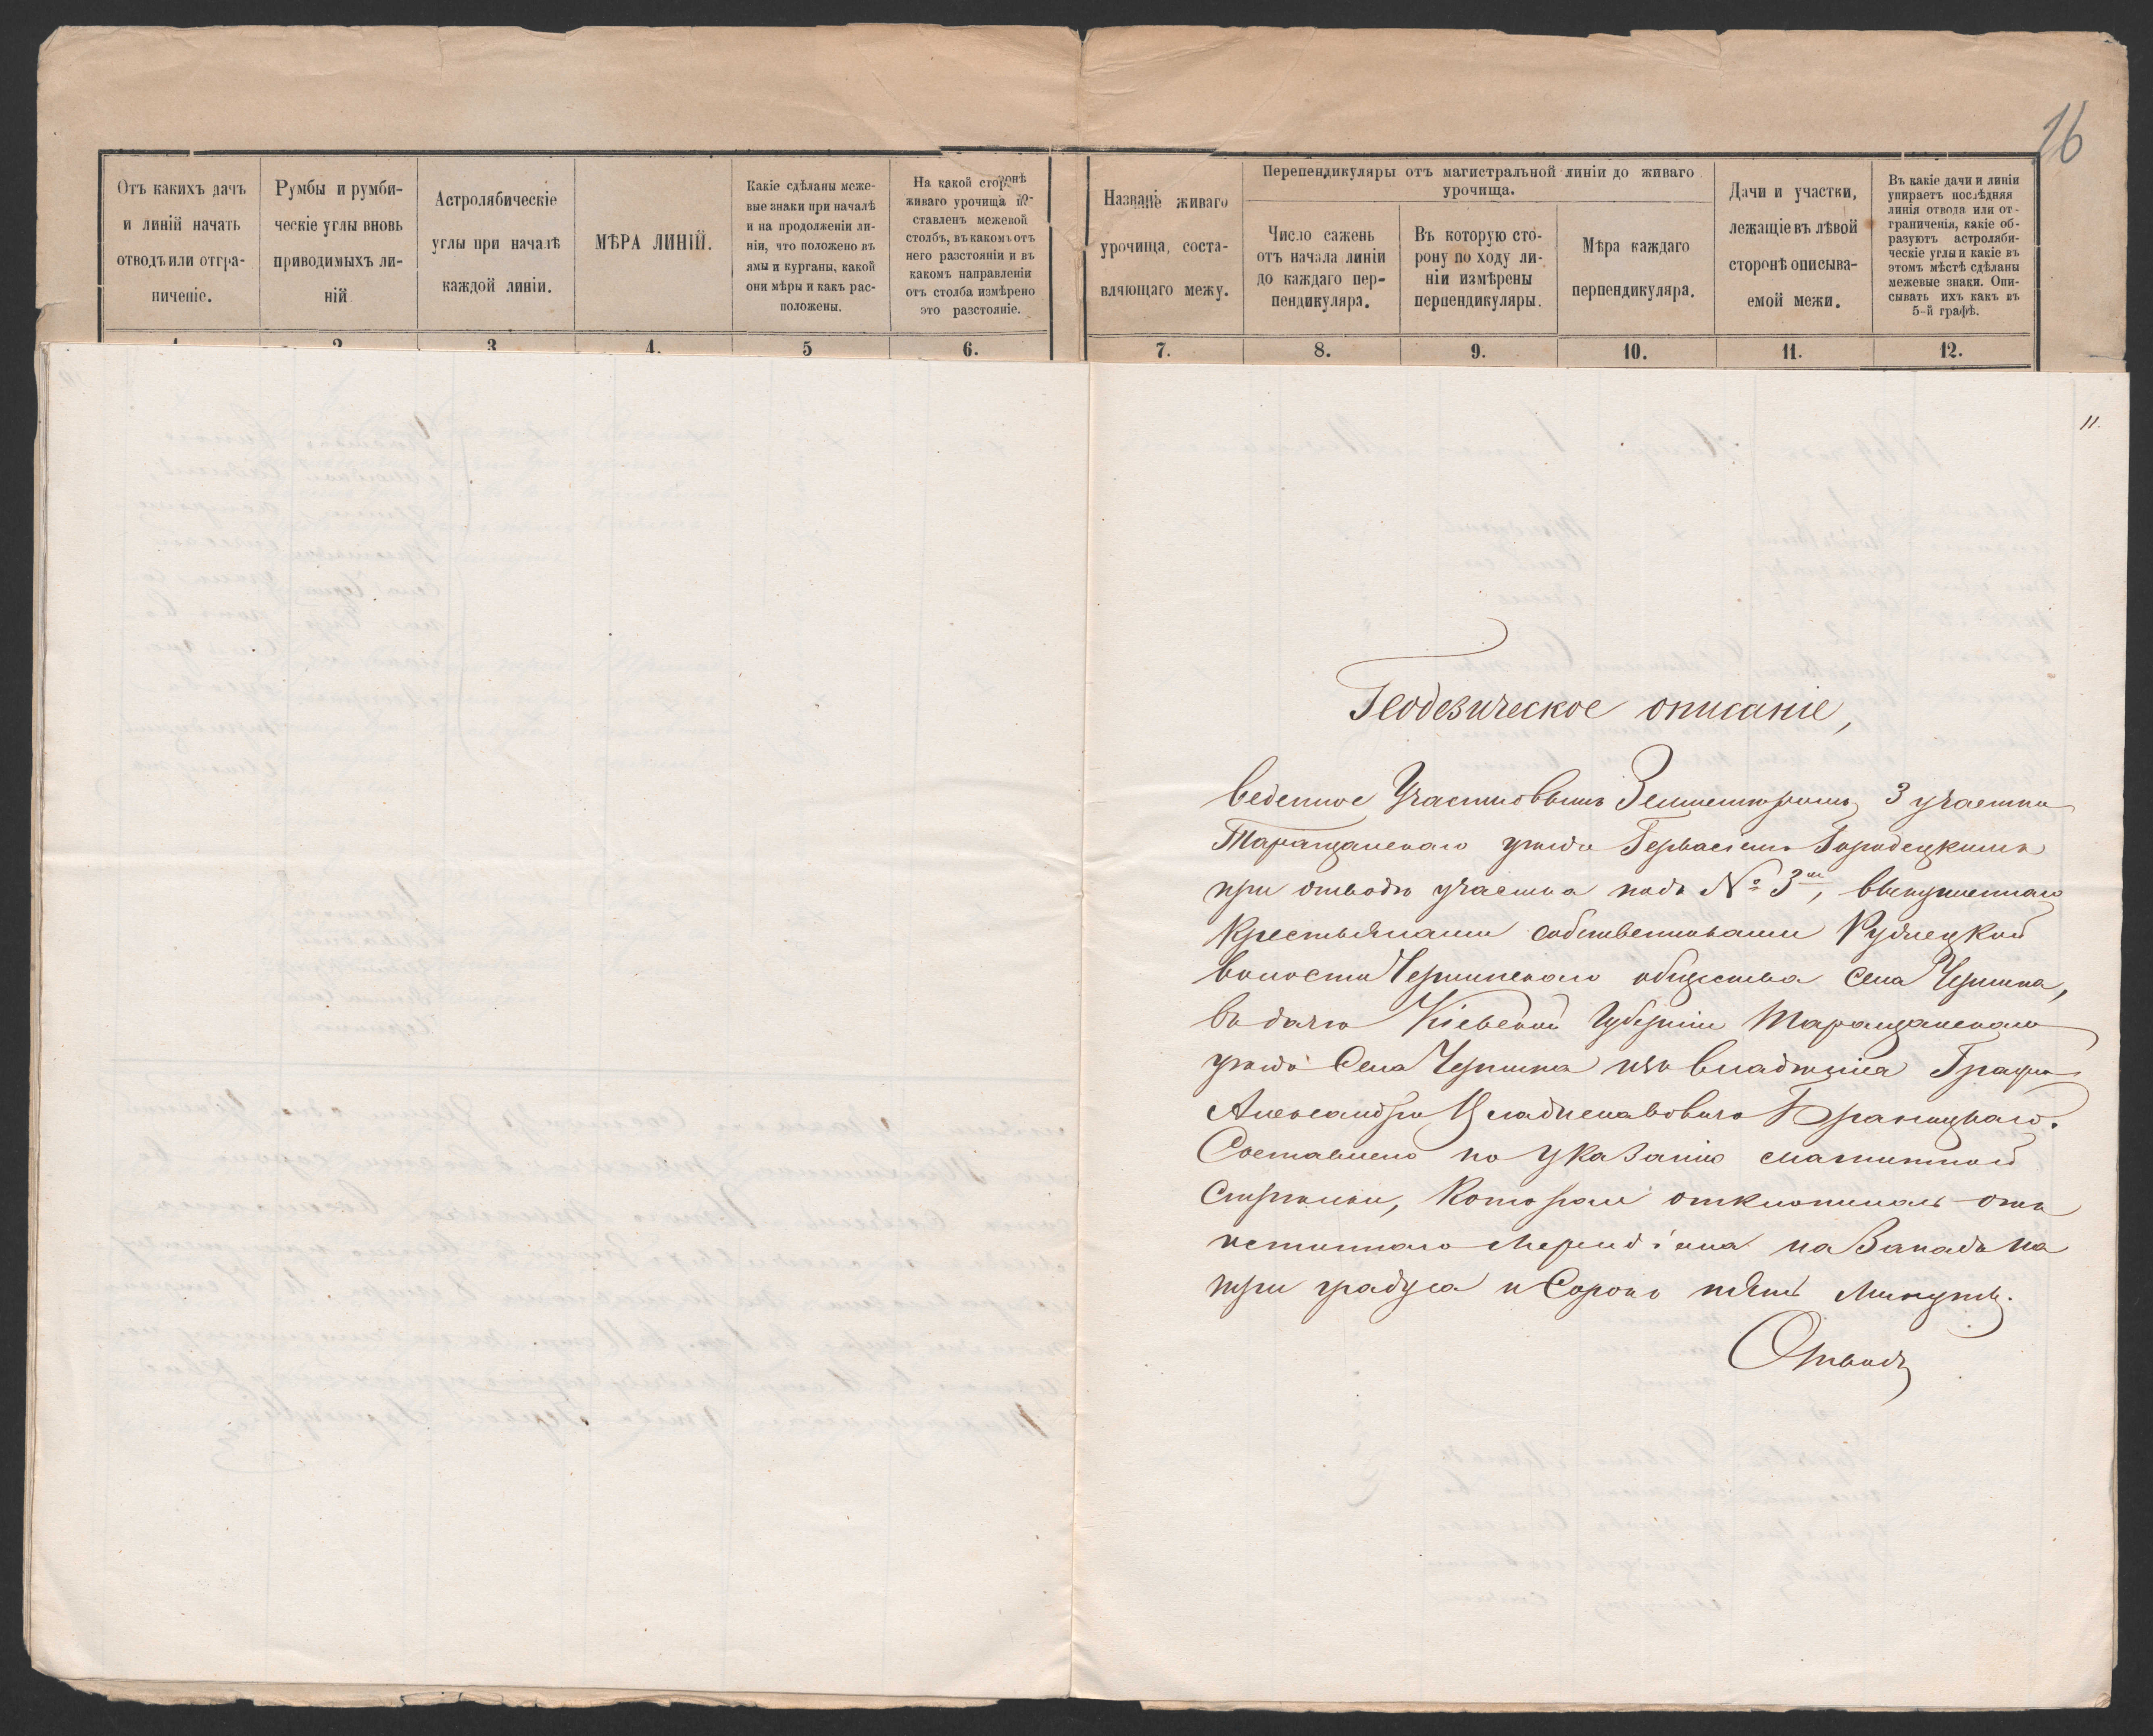 16
Отъ какихъ дачъ
и линій начать
отводъ или отгра-
ниченіе.
Румбы и румби-
ческіе углы вновь
приводимыхъ ли-
ній
Астролябическіе
углы при началѣ
каждой линіи.
МѢРА ЛИНІЙ.
Какіе сдѣланы меже-
вые знаки при началѣ
и на продолженіи ли-
ніи, что положено въ
ямы и курганы, какой
они мѣры и какъ рас-
положены.
На какой сторонѣ
живаго урочища по-
ставленъ межевой
столбъ, въ какомъ отъ
него разстояніи и въ
какомъ направленіи
отъ столба измѣрено
это разстояніе.
Названіе живаго
урочища, соста-
вляющаго межу.
Перепендикуляры отъ магистральной линіи до живаго
урочища.
Число сажень
отъ начала линіи
до каждаго пер-
пендикуляра.
Въ которую сто-
рону по ходу ли-
ніи измѣрены
перпендикуляры.
Мѣра каждаго
перпендикуляра.
Дачи и участки,
лежащіе въ лѣвой
сторонѣ описыва-
емой межи.
Въ какіе дачи и линіи
упираетъ послѣдняя
линія отвода или от-
граниченія, какіе об-
разуютъ астроляби-
ческіе углы и какіе въ
этомъ мѣстѣ сдѣланы
межевые знаки. Опи-
сывать ихъ какъ въ
5-й графѣ.
1 2 3 4. 5 6. 7. 8. 9. 10. 11. 12.
11.
Геодезическое описаніе,
веденное Участковымъ Землемѣромъ 3 участка
Таращанскаго уѣзда Гервасіемъ Городецкимъ
при отводѣ участка подъ № 3м, выкупленнаго
Крестьянами собственниками Рудиецкой
волости Чернинскаго общества Села Чернина,
въ дачѣ Кіевской Губерніи Таращанскаго
уѣзда Села Чернина изъ владѣнія Графа
Александра Владиславовича Браницкаго.
Составлено по указанію магнитной
Стрѣлки, которая отклонилась отъ
истиннаго Меридіана на Западъ на
три градуса и Сорокъ пять Минутъ.
Отводъ